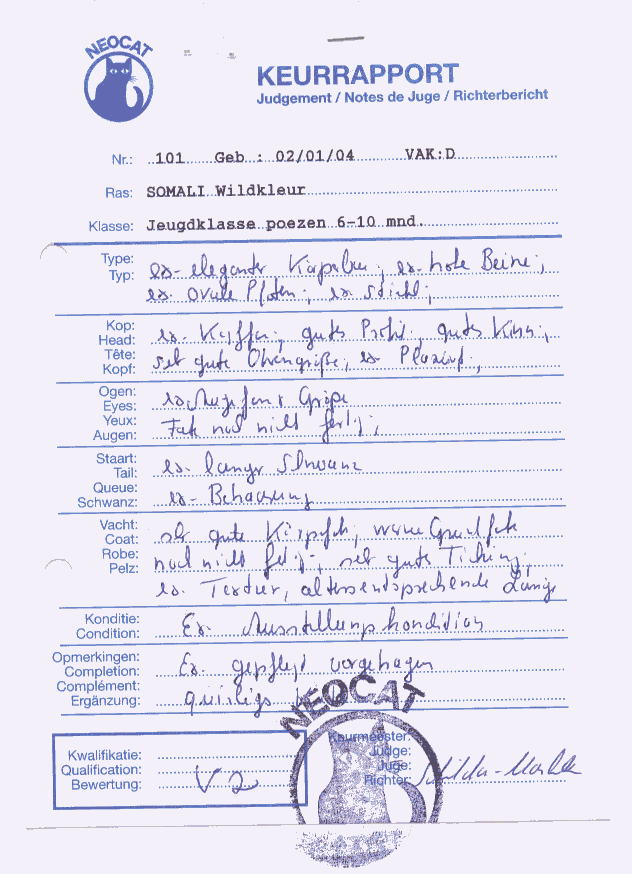 NEOCAT
KEURRAPPORT
Judgement / Notes de Juge / Richterbericht
Nr.: 101 Geb : 02/01/04 VAK:D
Ras: SOMALI Wildkleur
Klasse: Jeugdklasse poezen 6-10 mnd.
Type:
Typ:
ex. eleganter ex. hohe Beine;
ex. ovale Pfoten; ex.
Kop:
Head:
Tête:
Kopf:
ex. gutes Profil, gutes Kinn;
sehr gute Ohrengröße, ex.
Ogen:
Eyes:
Yeux:
Augen:
ex. Augenform + Größe
noch nicht fertig;
Staart:
Tail:
Queue:
Schwanz:
ex. langer Schwanz
ex. Behaarung
Vacht:
Coat:
Robe:
Pelz:
sehr gute warme
noch nicht fertig; sehr gutes Ticking;
ex. Textur, altersentsprechende Länge
Konditie:
Condition:
Ex. Ausstellungskondition
Opmerkingen:
Completion:
Complément:
Ergänzung:
Ex. gepflegt vorgetragen
quirliges
NEOCAT
Kwalifikatie:
Qualification:
Bewertung:
V2
Keurmeester:
Judge:
Juge:
Richter: